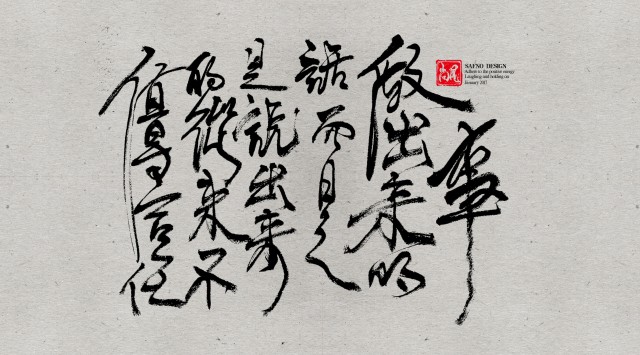 事
做出来的
話而
是説出来
的從来不
值得信任
SAFNO DESIGN
Adhere to the positive energy
Laughing and holding on
January 2017